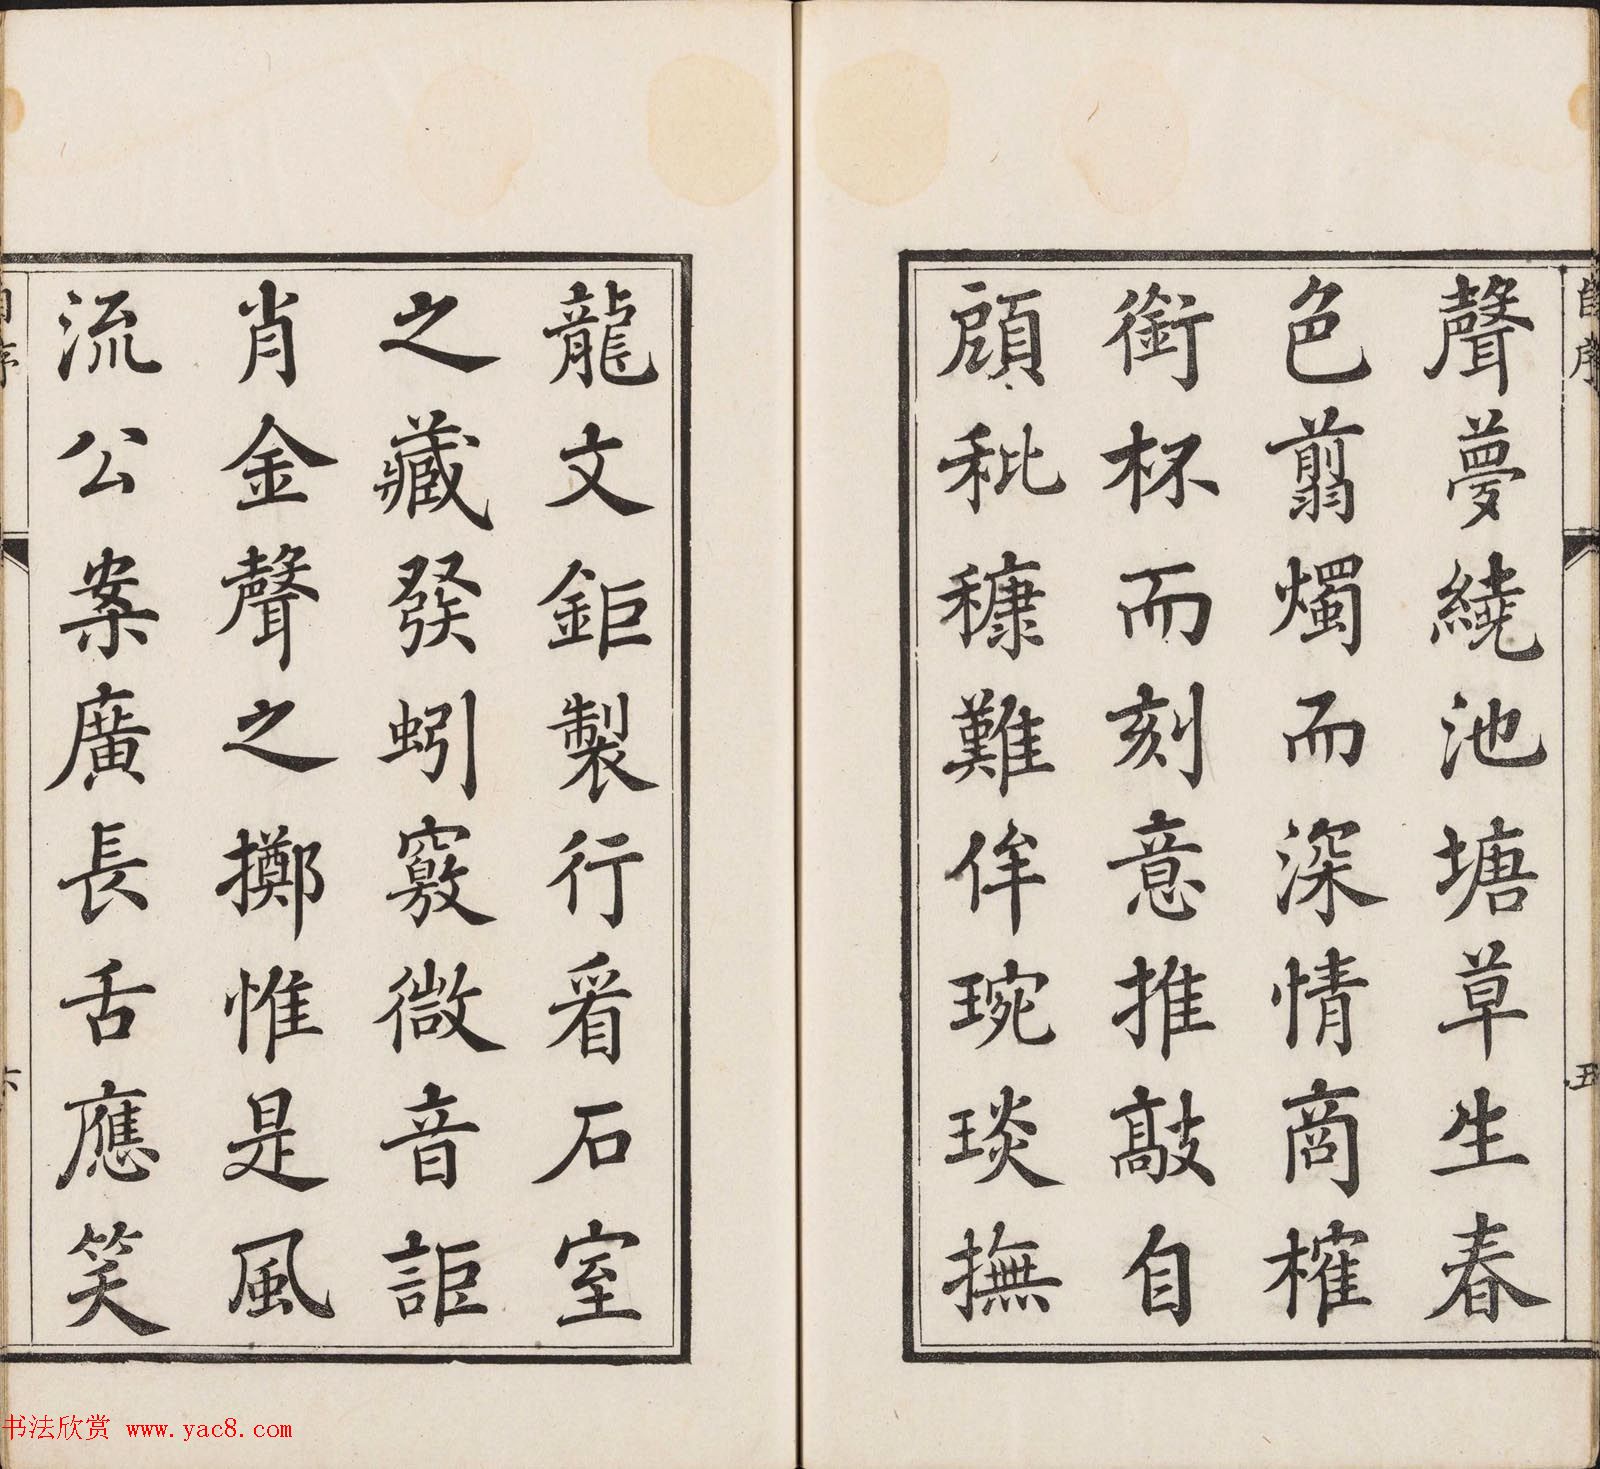 自序
聲夢繞池塘草生春
色翦燭而深情商榷
銜杯而刻意推敲自
顧秕穅難侔琬琰撫
五
龍文鉅製行看石室
之藏發蚓竅微音詎
肖金聲之擲惟是風
流公案廣長舌應笑
自序
六
书法欣赏 www.yac8.com